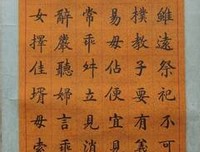 雖遠祭祀不可
樸教子要有
易毋佔便宜見
常乖舛立見消
辭嚴聽婦言乖
女擇佳壻毋索